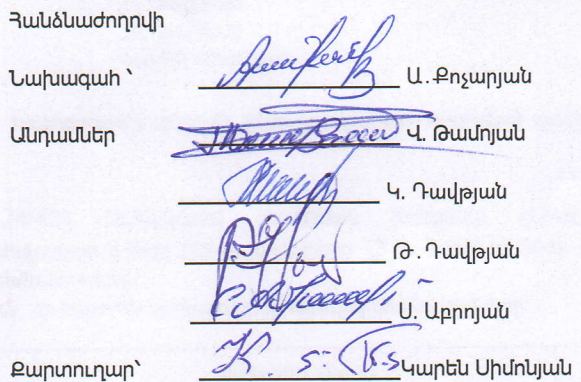 Հանձնաժողովի
Նախագահ ՝ Ա. Քոչարյան
Անդամներ Վ. Թամոյան
Կ. Դավթյան
Թ. Դավթյան
Ս. Աբրոյան
Քարտուղար՝ Կարեն Սիմոնյան